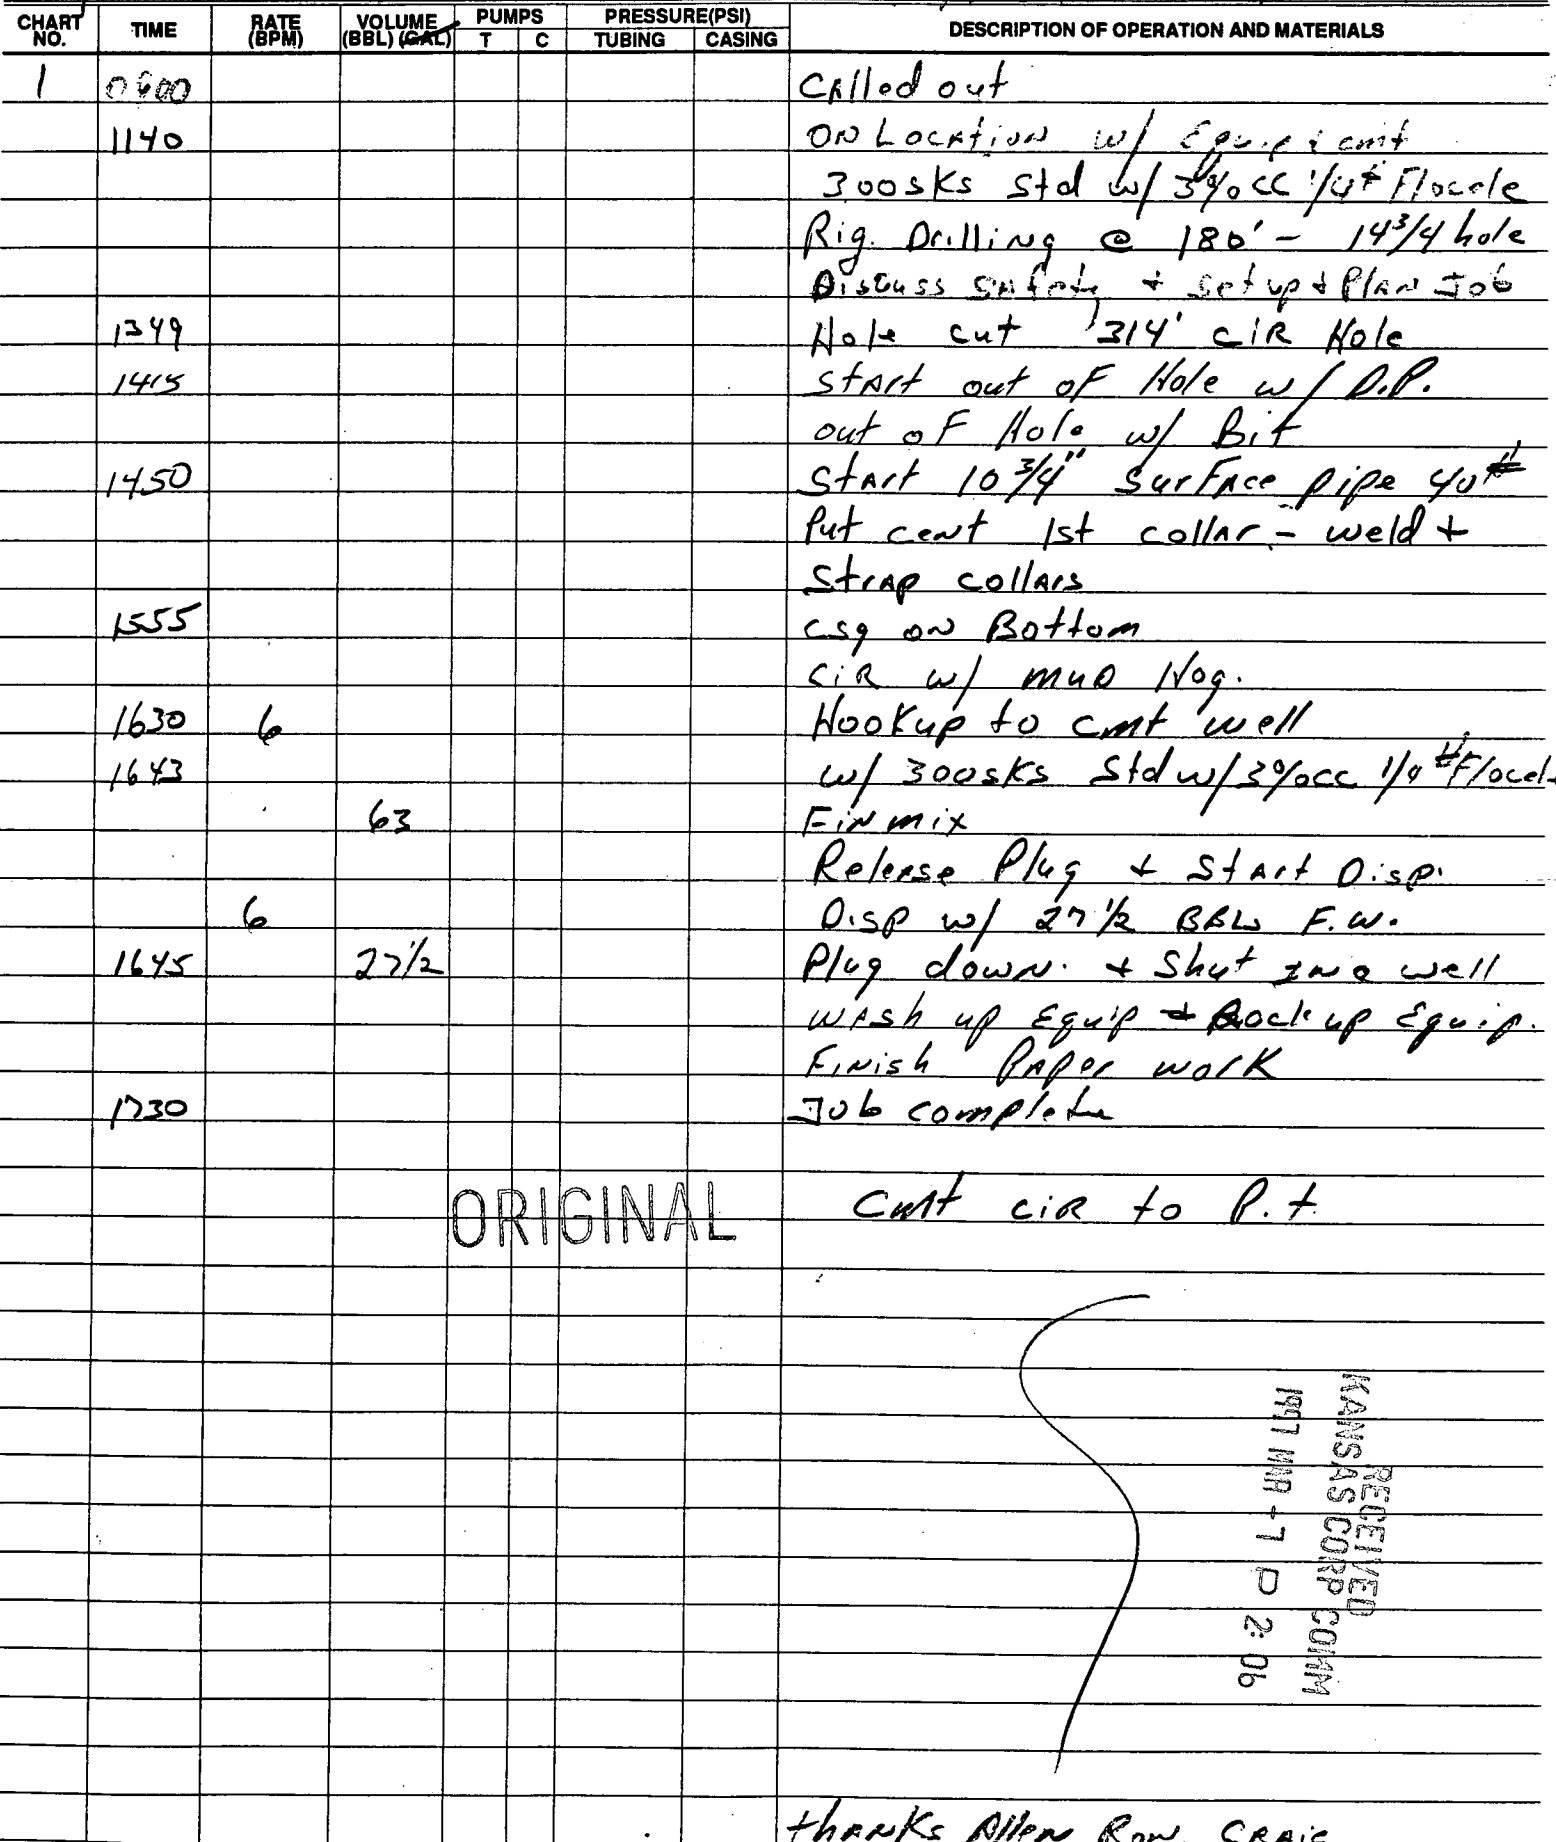 CHART NO. TIME RATE (BPM) VOLUME (BBL) (GAL) PUMPS T C PRESSURE(PSI) TUBING CASING DESCRIPTION OF OPERATION AND MATERIALS
1 Called out
1140 ON LOCATION w/ Equip & cmt
300sks Std w/ 3%cc 1/4# Flocele
Rig. Drilling @ 180' - 14 3/4 hole
Discuss Safety + Set up + Plan Job
1349 Hole cut 314' CIR Hole
1415 Start out of Hole w/ D.P.
out of Hole w/ Bit
1450 Start 10 3/4" Surface pipe 40#
Put cent 1st collar - weld +
Strap collars
1555 csg on Bottom
CIR w/ MUD Hog.
1630 6 Hookup to cmt well
1643 w/ 300sks Std w/3%cc 1/4 # Flocel
63 Fin mix
Release Plug + Start Disp.
6 Disp w/ 27 1/2 BBLs F.W.
1645 27 1/2 Plug down. + Shut in well
Wash up Equip + Rack up Equip.
Finish Paper work
1730 Job complete
ORIGINAL Cmt CIR to P.t.
RECEIVED
KANSAS CORP COMM
1997 MAR -7 P 2:06
thanks Allen Ron, Craig